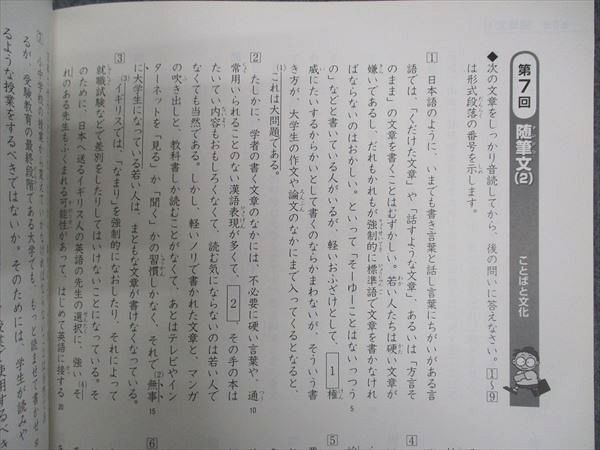 第7回 随筆文(2)
ことばと文化
◆次の文章をしっかり音読してから、後の問いに答えなさい。1〜9
は形式段落の番号を示します。
1 日本語のように、いまでも書き言葉と話し言葉にちがいがある言
語では、「くだけた文章」や「話すような文章」、あるいは「方言そ
のまま」の文章を書くことはむずかしい。若い人たちは硬い文章が
嫌いであるし、だれもかれもが強制的に標準語で文章を書かなけれ
ばならないのはおかしい。といって「そーゆーことはないっつう
の」などと書いている人がいるが、軽いおふざけとして、1権
威にたいするからかいとして書くのならかまわないが、そういう書
き方が、大学生の作文や論文のなかにまで入ってくるとなると、
(1)これは大問題である。
2 たしかに、学者の書く文章のなかには、不必要に硬い言葉や、通
常用いられることのない漢語表現が多くて、2、その手の本は
たいてい内容もおもしろくなくて、読む気にならないのは若い人で
なくても当然である。しかし、軽いノリで書かれた文章と、マンガ
の吹き出しと、教科書しか読むことがなくて、あとはテレビやイン
ターネットを「見る」か「聞く」かの習慣しかなく、それで(2)無事
に大学生になっている若い人は、まともな文章が書けなくなっている。
3 (3)イギリスでは、「なまり」を強制的になおしたり、それによって
就職試験などで差別をしたりしてはいけないことになっている。そ
のために、日本へ送るイギリス人の英語の先生の選択に、強い(4)そ
れのある先生もふくまれる可能性があって、はじめて英語に接する
小中学校の
るが、受験教育の最終段階である大学でも、もっと読ませて書かせ
るような授業をするべきではないか。そのためには、学生が読みや
5
10
15
20
4
5
6